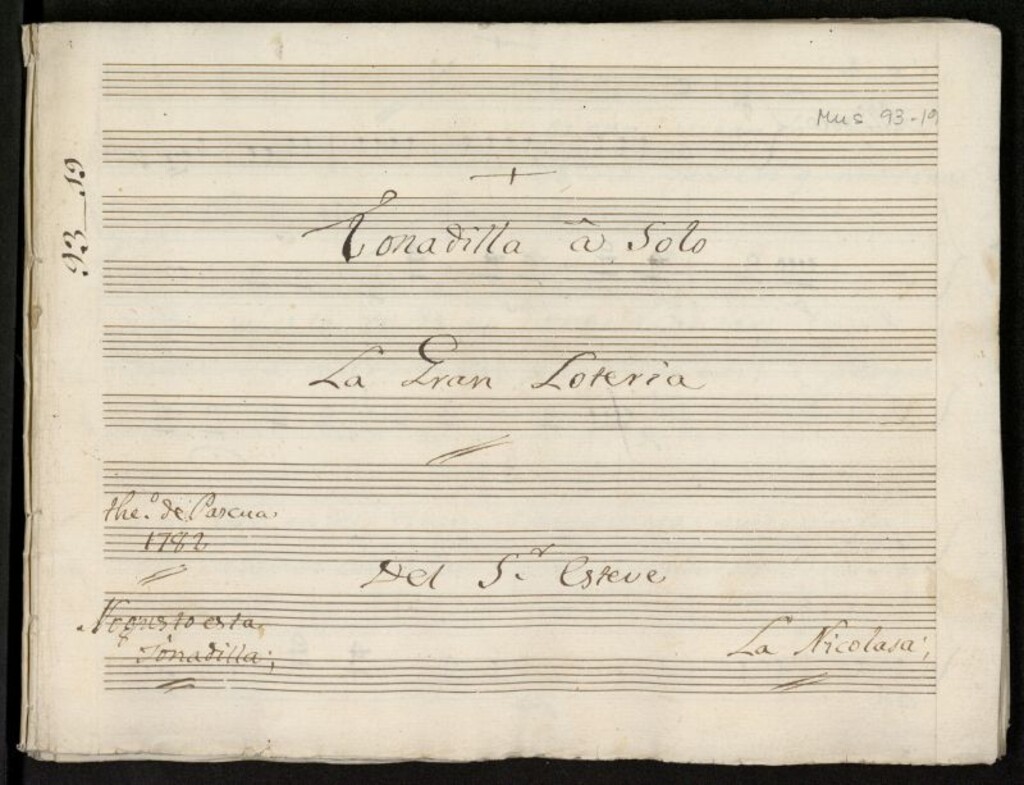 Mus 93-19
93_19
Tonadilla â Solo
La Gran Loteria
the.º de Pascua
1782
Del S.r Esteve
No gusto esta
Tonadilla;
La Nicolasa;